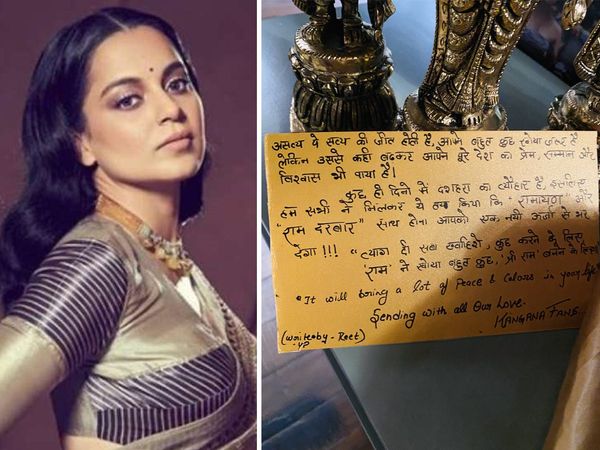 असत्य पे सत्य की जीत होती है, आपने बहुत कुछ खोया जरूर है
लेकिन उससे कही बढ़कर आपने पूरे देश का प्रेम, सम्मान और
विश्वास भी पाया है।
कुछ ही दिनों में दशहरा का त्यौहार है, इसलिए
हम सभी ने मिलकर ये तय किया कि "रामायण" और
"राम दरबार" साथ होना आपको एक नयी ऊर्जा से भर
देगा !!! "त्याग दी सब ख्वाहिशें, कुछ करने के लिए
'राम' ने खोया बहुत कुछ, 'श्री राम' बनने के लिए।
"It will bring a lot of Peace & Calmness in your life"
Sending with all Our Love.
KANGANA FANS..
(writer by - Reet)
UP